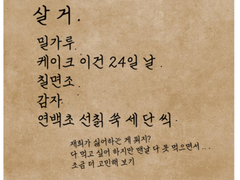 살 거.
밀가루.
케이크 이건 24일 날.
칠면조.
감자.
연백초 선칡 쑥 세 단 씩.
재희가 싫어하는 게 뭐지?
다 먹고 싶어 하지만 맨날 다 못 먹으면서...
조금 더 고민해 보기